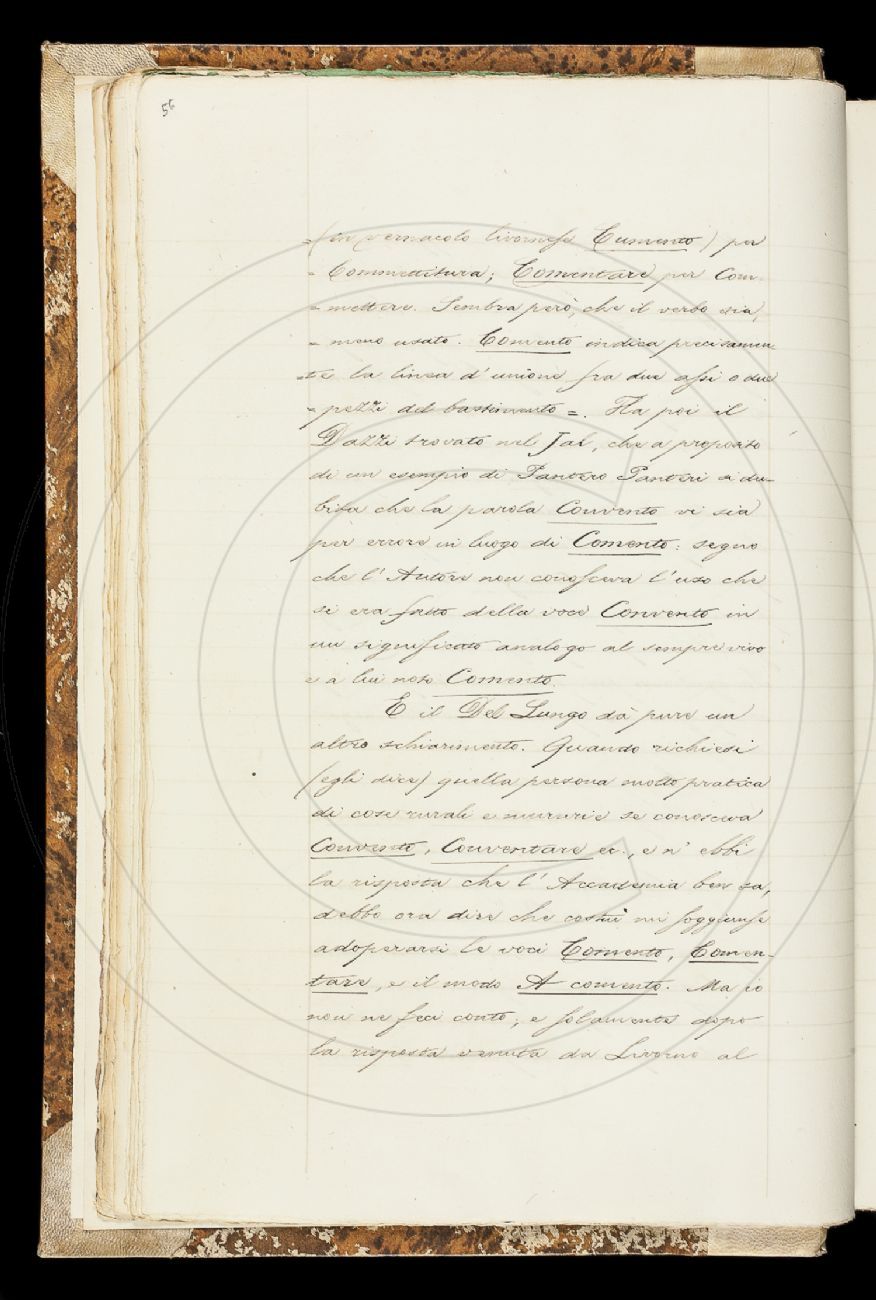 56
= (in vernacolo livornese Cumento) per
= Commettitura; Comentare per Com-
= mettere. Sembra però, che il verbo sia
= meno usato. Comento indica precisamen-
= te la linea d'unione fra due assi o due
= pezzi del bastimento =. Ha poi il
Dazzi trovato nel Jal, che a proposito
di un esempio di Pantero Panteri si du-
bita che la parola Convento vi sia
per errore in luogo di Comento: segno
che l'Autore non conosceva l'uso che
si era fatto della voce Convento in
un significato analogo al sempre vivo
e a lui noto Comento.
E il Del Lungo dà pure un
altro schiarimento. Quando richiesi
(egli dice) quella persona molto pratica
di cose rurali e murarie se conosceva
Convento, Conventare ec., e n'ebbi
la risposta che l'Accademia ben sa,
debbo ora dire che costui mi soggiunse
adoperarsi le voci Comento, Comen-
tare, e il modo A comento. Ma io
non ne feci conto; e solamente dopo
la risposta venuta da Livorno al